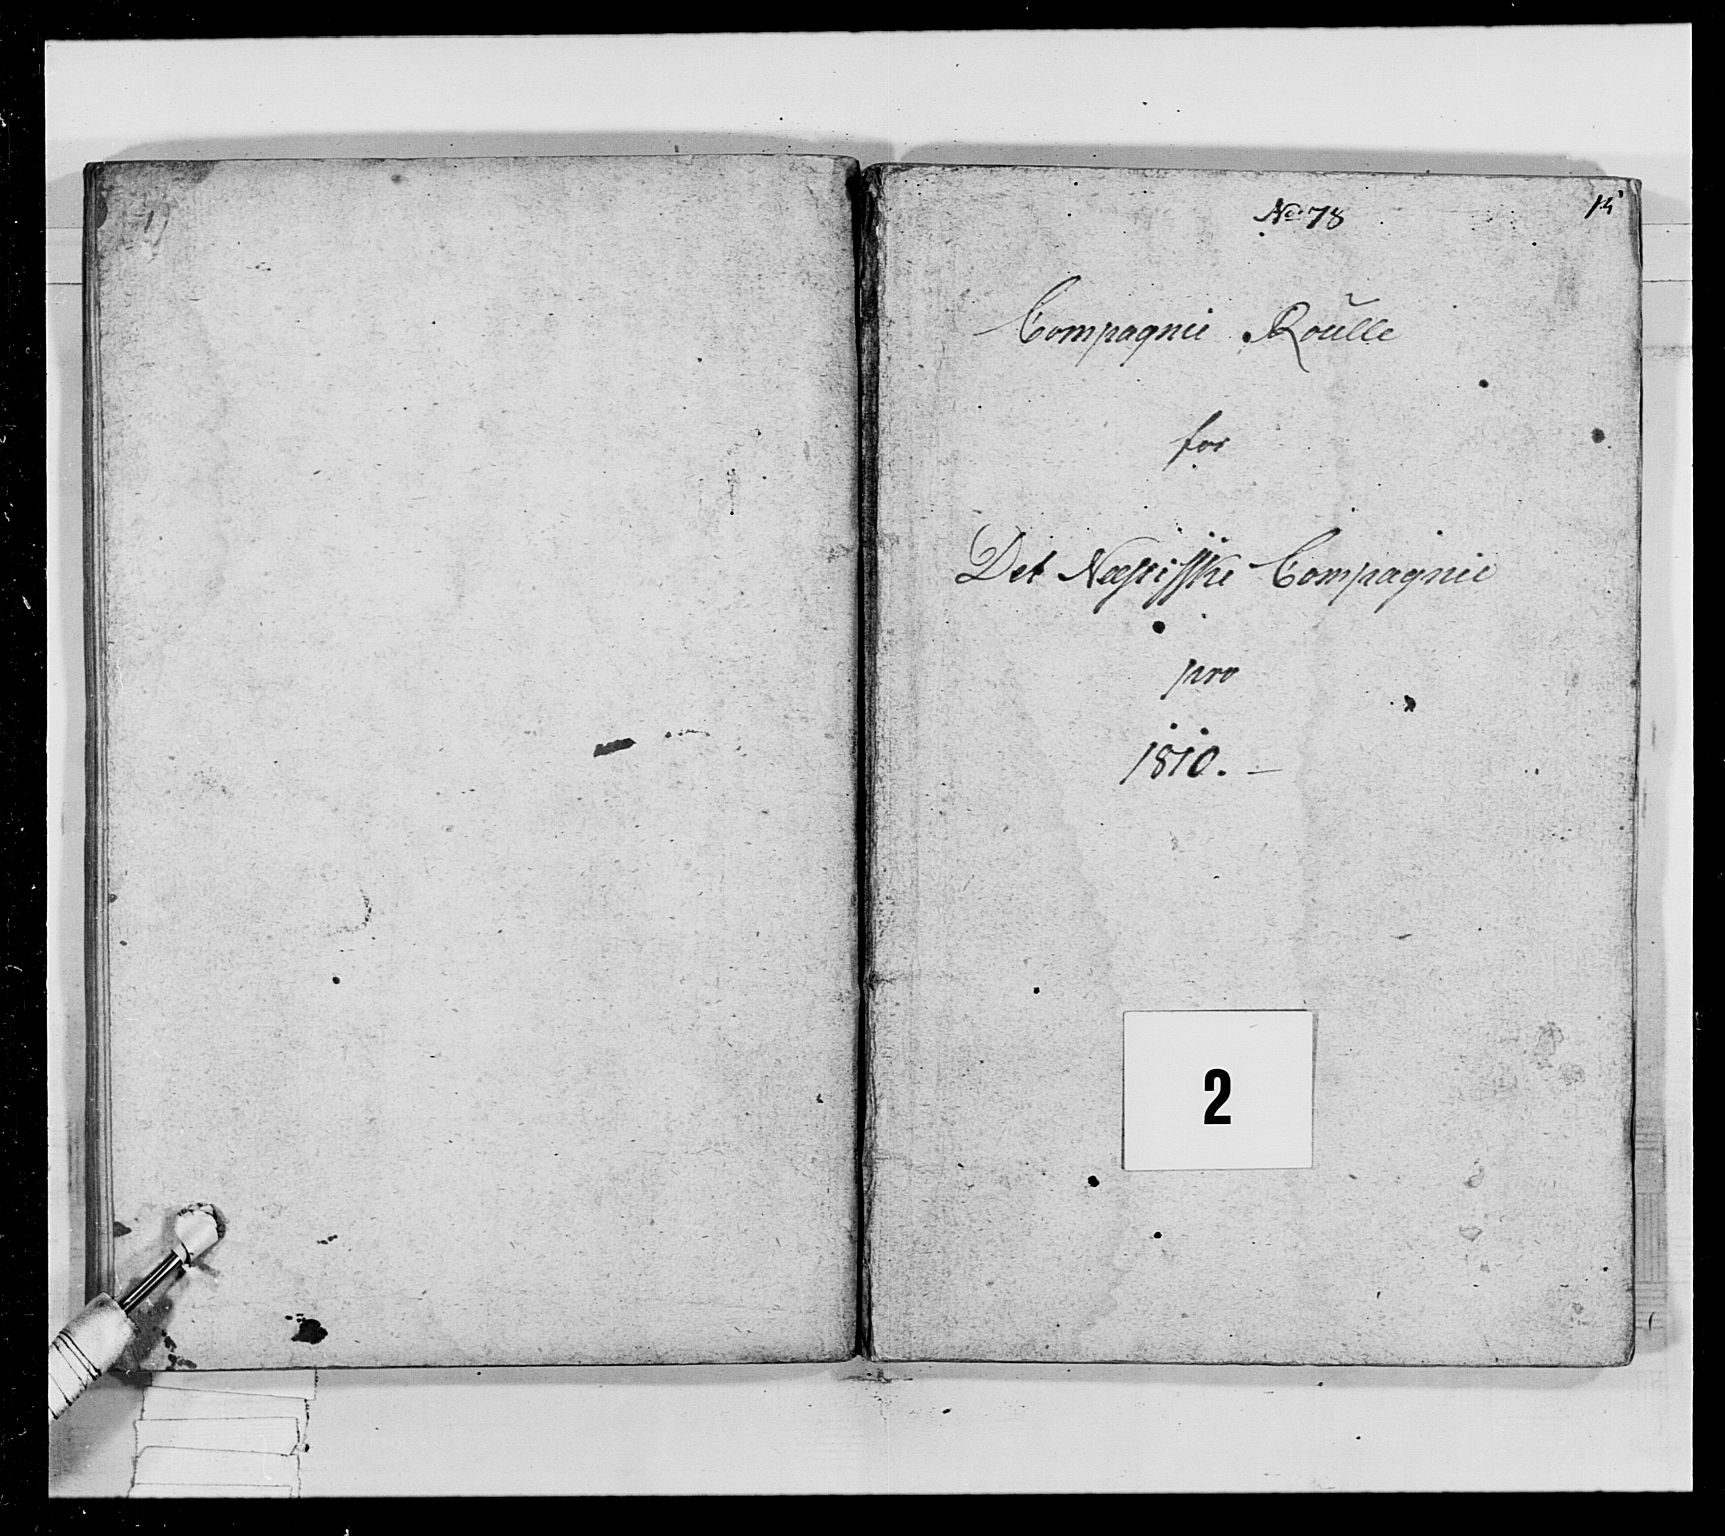 No 78
Compagnie Roulle
for
Det Næssiske Compagnie
pro
1810. —
2